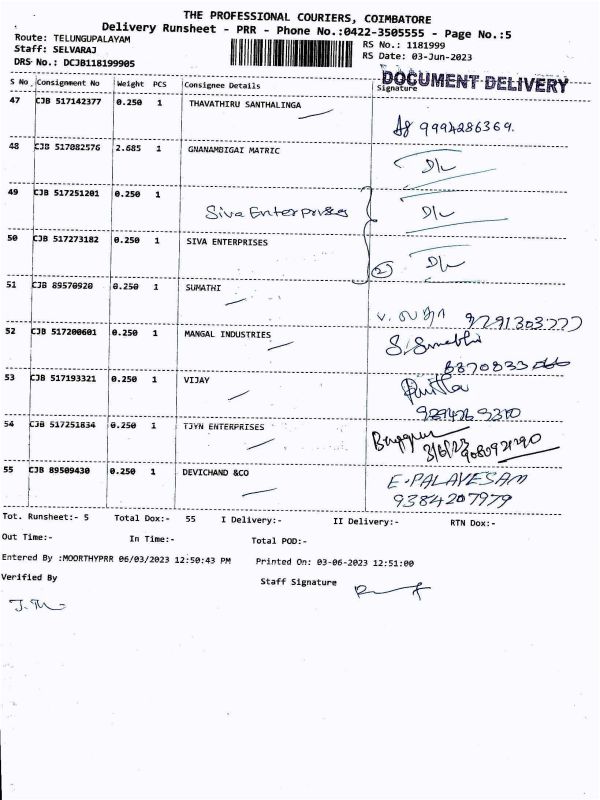 THE PROFESSIONAL COURIERS, COIMBATORE
Delivery Runsheet - PRR - Phone No.:0422-3505555 - Page No.:5
Route: TELUNGUPALAYAM
Staff: SELVARAJ
DRS No.: DCJB118199905
RS No.: 1181999
RS Date: 03-Jun-2023
DOCUMENT DELIVERY
S No Consignment No Weight PCS Consignee Details Signature
47 CJB 517142377 0.250 1 THAVATHIRU SANTHALINGA
9994286369.
48 CJB 517082576 2.685 1 GNANAMBIGAI MATRIC
D/L
49 CJB 517251201 0.250 1
Siva Enterprises D/L
50 CJB 517273182 0.250 1 SIVA ENTERPRISES
2 D/L
51 CJB 89570920 0.250 1 SUMATHI
V. லதா 9791303777
52 CJB 517200601 0.250 1 MANGAL INDUSTRIES
8870833
53 CJB 517193321 0.250 1 VIJAY
54 CJB 517251834 0.250 1 TJYN ENTERPRISES
3/6/23
55 CJB 89509430 0.250 1 DEVICHAND &CO
E-PALAVESAM
9384207979
Tot. Runsheet:- 5 Total Dox:- 55 I Delivery:- II Delivery:- RTN Dox:-
Out Time:- In Time:- Total POD:-
Entered By :MOORTHYPRR 06/03/2023 12:50:43 PM Printed On: 03-06-2023 12:51:00
Verified By Staff Signature